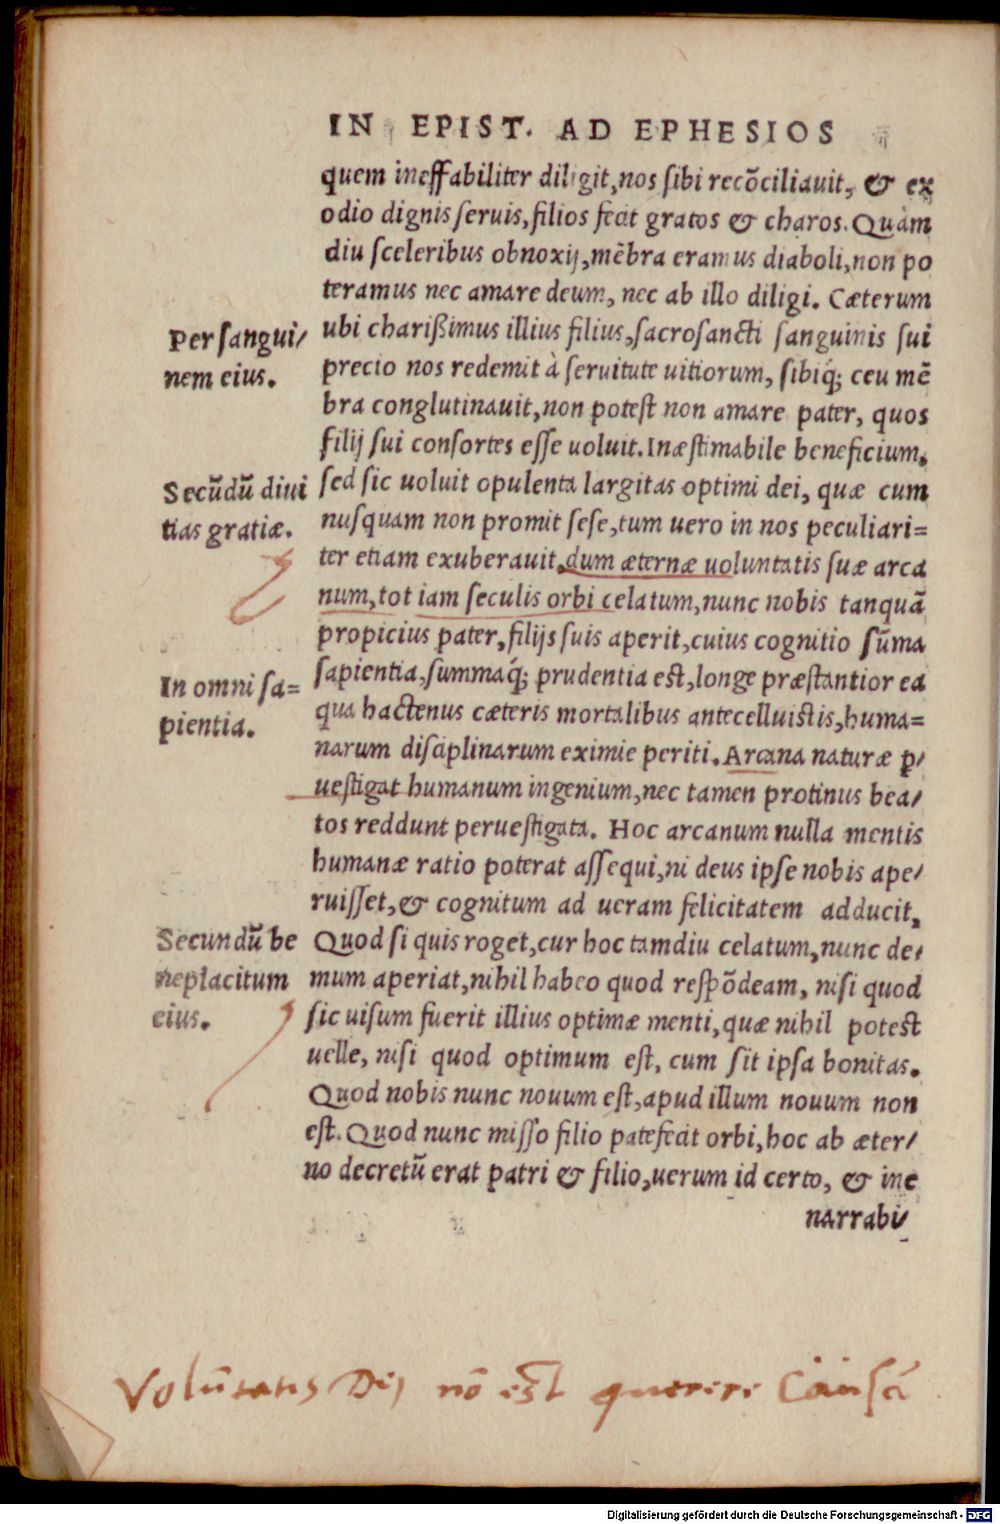 IN EPIST. AD EPHESIOS
quem ineffabiliter diligit, nos sibi recõciliauit, & ex
odio dignis seruis, filios fecit gratos & charos. Quàm
diu sceleribus obnoxij, mẽbra eramus diaboli, non po
teramus nec amare deum, nec ab illo diligi. Cæterum
Per sangui/
nem eius.
ubi charißimus illius filius, sacrosancti sanguinis sui
precio nos redemit à seruitute uitiorum, sibiq́; ceu mẽ
bra conglutinauit, non potest non amare pater, quos
filij sui consortes esse uoluit. Inæstimabile beneficium,
Secũdũ diui
tias gratiæ.
sed sic uoluit opulenta largitas optimi dei, quæ cum
nusquam non promit sese, tum uero in nos peculiari=
ter etiam exuberauit, dum æternæ uoluntatis suæ arca
num, tot iam seculis orbi celatum, nunc nobis tanquã
propicius pater, filijs suis aperit, cuius cognitio sũma
In omni sa=
pientia.
sapientia, summaq́; prudentia est, longe præstantior ea
qua hactenus cæteris mortalibus antecelluistis, huma=
narum disciplinarum eximie periti. Arcana naturæ ꝑ/
uestigat humanum ingenium, nec tamen protinus bea/
tos reddunt peruestigata. Hoc arcanum nulla mentis
humanæ ratio poterat assequi, ni deus ipse nobis ape/
ruisset, & cognitum ad ueram felicitatem adducit,
Secundũ be
neplacitum
eius.
Quod si quis roget, cur hoc tamdiu celatum, nunc de/
mum aperiat, nihil habeo quod respõdeam, nisi quod
sic uisum fuerit illius optimæ menti, quæ nihil potest
uelle, nisi quod optimum est, cum sit ipsa bonitas.
Quod nobis nunc nouum est, apud illum nouum non
est. Quod nunc misso filio patefecit orbi, hoc ab æter/
no decretũ erat patri & filio, uerum id certo, & ine
narrabi/
Volũtatis Dei nõ est querere Causã
Digitalisierung gefördert durch die Deutsche Forschungsgemeinschaft - DFG